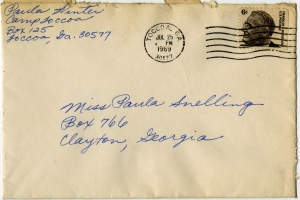 Paula Winter
Camp Toccoa
Box 125
Toccoa, Ga. 30577
TOCCOA, GA.
JUL
PM
1969
30577
6¢
Miss Paula Snelling
Box 766
Clayton, Georgia